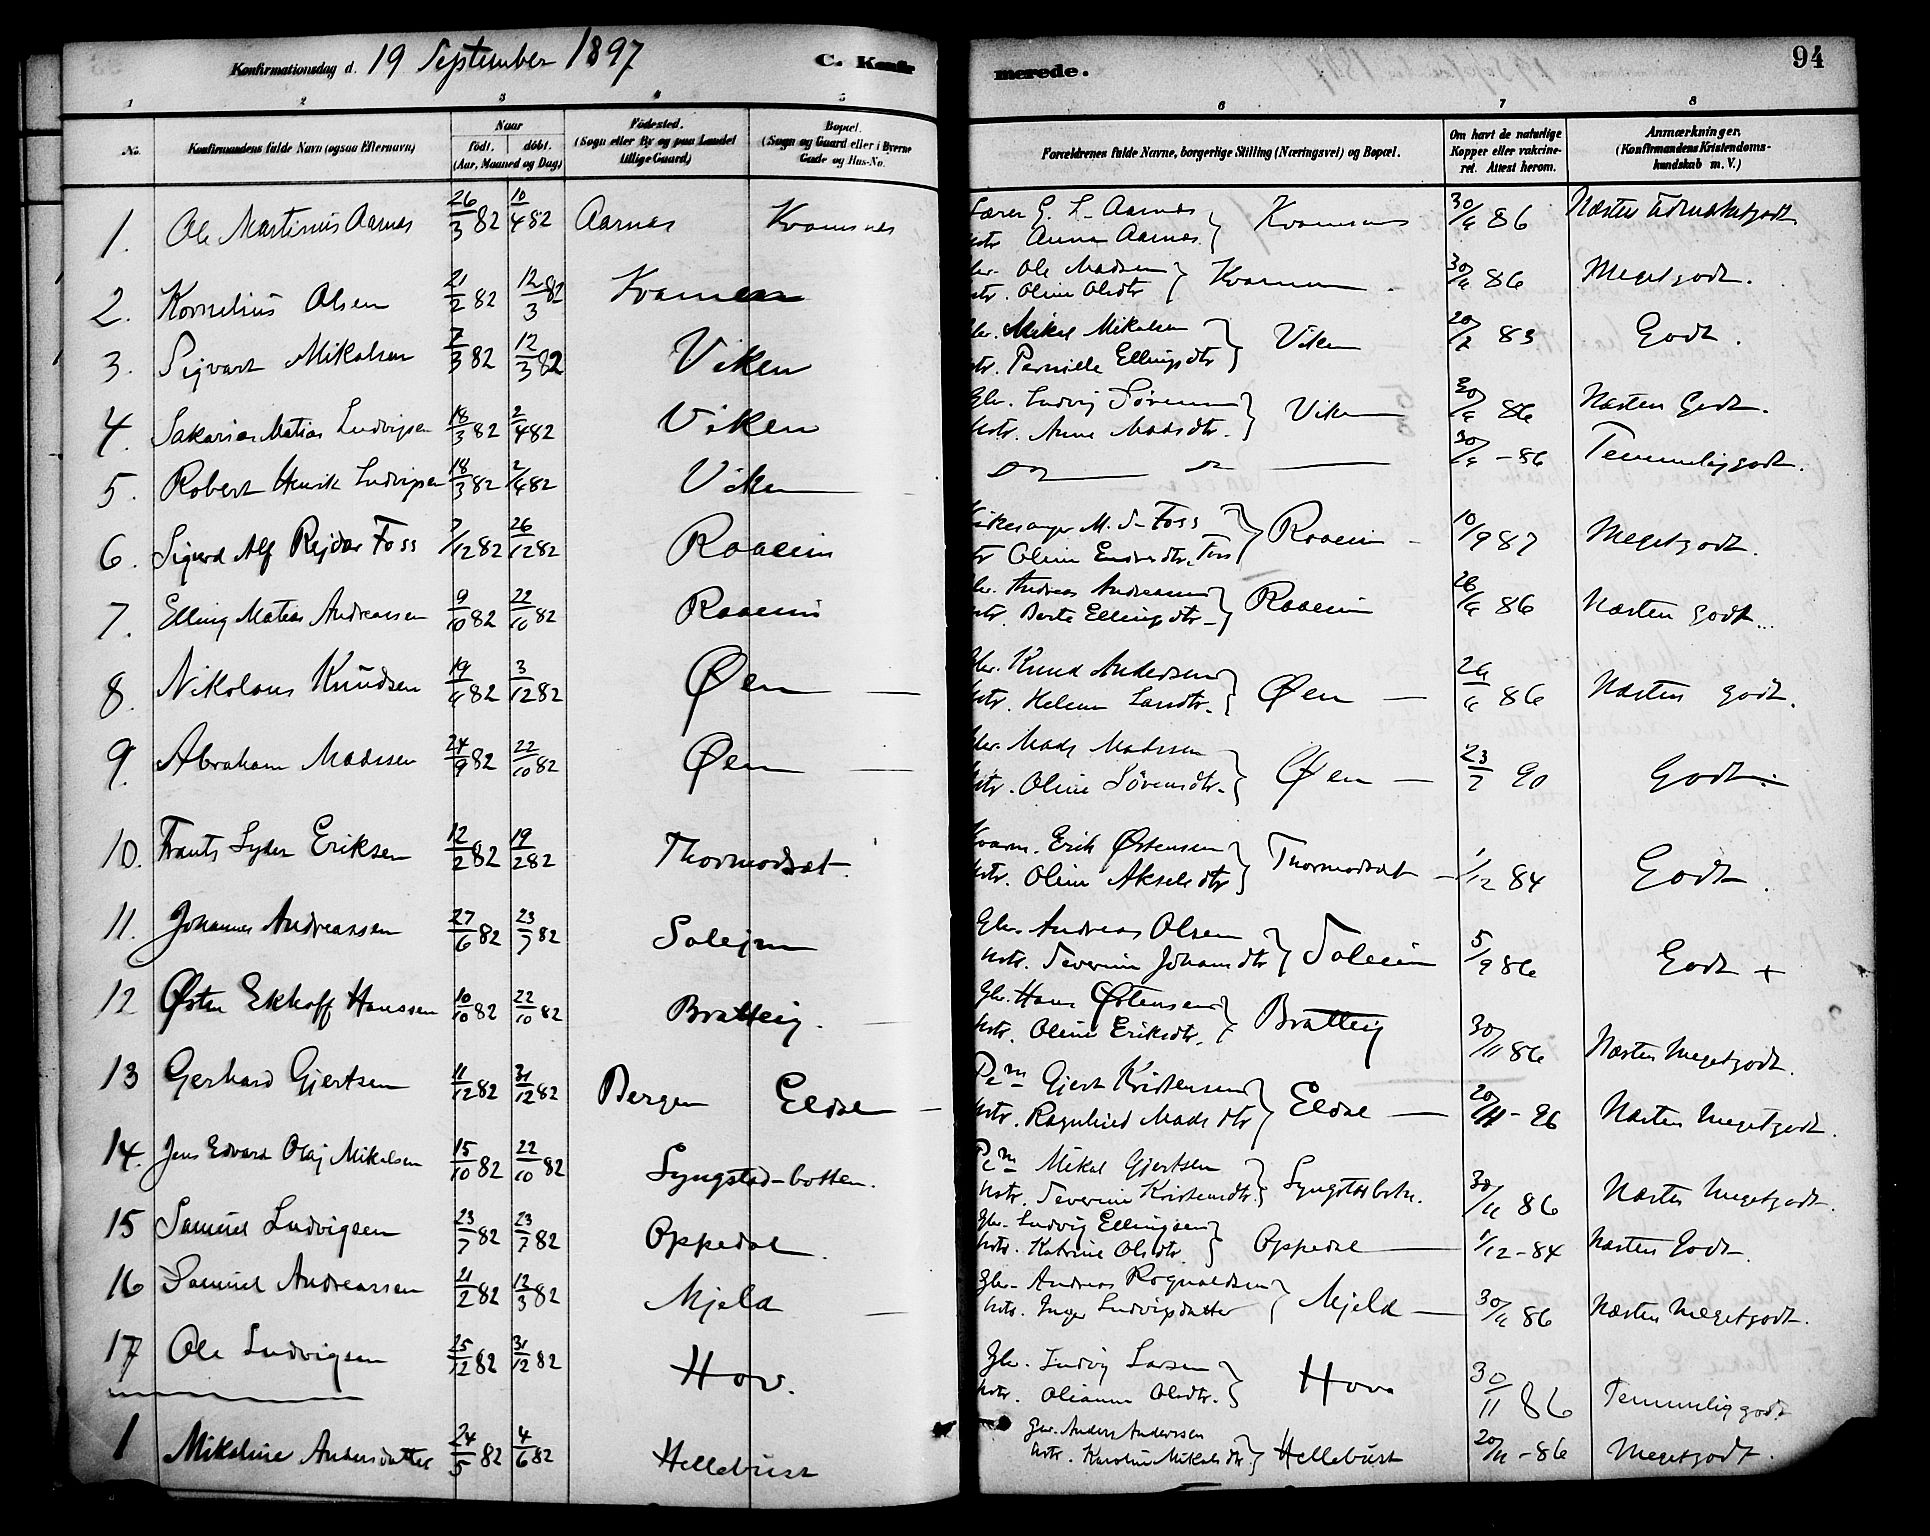 Konfirmationsdag d. 19 September 1897 C. Konfir
merede. 94
1 2 3 4 5 6 7 8
No. Konfirmandens fulde Navn (ogsaa Efternavn) Naar født, døbt. (Aar, Maaned og Dag) Fødested. (Sogn eller By og paa Landet tillige Gaard) Bopæl. (Sogn og Gaard eller i Byerne Gade og Hus-No.
Forældrenes fulde Navne, borgerlige Stilling (Næringsvei) og Bopæl. Om havt de naturlige Kopper eller vakcineret. Attest herom. Anmærkninger. (Konfirmandens Kristendomskundskab m. V.)
1. Ole Martinus Aarnes 26/3 82 10/4 82 Aarnes Kvamsnes
Lærer E. L. Aarnes Anna Aarnes Kvamsnes 86
2. Kornelius Olsen 21/2 82 12/3 82
Ole Madsen Oline Olsdtr 86 Megetgodt.
3. Sigvart Mikalsen 7/3 82 12/3 82 Viken
Mikal Mikalsen Pernille Ellingsdtr Viken 83 Godt.
4. Sakarias Matias Ludvigsen 18/3 82 2/4 82 Viken
Gbr. Ludvig Sørensen Hstr. Anne Madsdtr. Viken 86 Næsten Godt.
5. Robert Henrik Ludvigsen 18/3 82 2/4 82 Viken
Do Do 86 Temmeliggodt.
6. Sigurd Alf Rejdar Foss 7/12 82 26/12 82 Raaeim
Kirkesanger M. S. Foss Oline Foss Raaeim 10/9 87 Megetgodt.
7. Elling Matias Andreassen 9/10 82 22/10 82 Raaeim
Andreas Andreassen Berte Ellingsdtr. Raaeim 86 Næsten godt.
8. Nikolaus Knudsen 19/ 82 3/12 82 Øen
Gbr. Knud Andersen Hstr. Helene Larsdtr. Øen 86 Næsten godt.
9. Abraham Madssen 24/9 82 22/10 82 Øen
Gbr. Mads Madssen Hstr. Oline Sørensdtr. Øen 23/7 90 Godt.
10. Frants Lyder Eriksen 12/2 82 19/2 82 Thormodsæt.
Kvarm. Erik Østensen Hstr. Oline Akselsdtr Thormodsæt 1/12 84 Godt.
11. Johannes Andreassen 27/6 82 23/7 82 Solejm
Gbr. Andreas Olsen Hstr. Severine Johansdtr Soleim 5/9 86 Godt +
12 Østen Ekhoff Hanssen 10/10 82 22/10 82 Bratteig.
Gbr. Hans Østensen Hstr. Oline Eriksdtr. Bratteig 30/11 86 Næsten Megetgodt.
13 Gerhard Gjertsen 11/12 82 31/12 82 Bergen Eldal
Pm Gjert Kristensen Hstr. Ragnhild Madsdtr Eldal 96 Næsten Megetgodt.
14. Jens Edvard Olaj Mikalsen 15/10 82 22/10 82 Syngstad-botten.
Pm Mikal Gjertsen Hstr. Severine Kristensdtr. Syngstadbotn. 30/11 86 Næsten Megetgodt.
15 Samuel Ludvigsen 23/7 82 23/7 82 Oppedal.
Gbr. Ludvig Ellingsen Hstr. Katrine Olsdtr Oppedal 1/12 - 84 Næsten Godt.
16 Samuel Andreassen 21/2 82 12/3 82 Mjeld
Gbr. Andreas Rognaldsen Hstr. Inger Ludvigsdatter Mjeld 86 Næsten Megetgodt.
17 Ole Ludvigsen 25/12 82 31/12 82 Hov.
Gbr. Ludvig Larsen Hstr. Oliane Olsdtr. Hov 30/11 86 Temmeliggodt
1 Mikaline Andersdatter 24/5 82 4/6 82 Hellebust
Gbr. Anders Anderssen Hstr. Karoline Mikalsdtr Hellebust 20/11 - 86 Megetgodt.